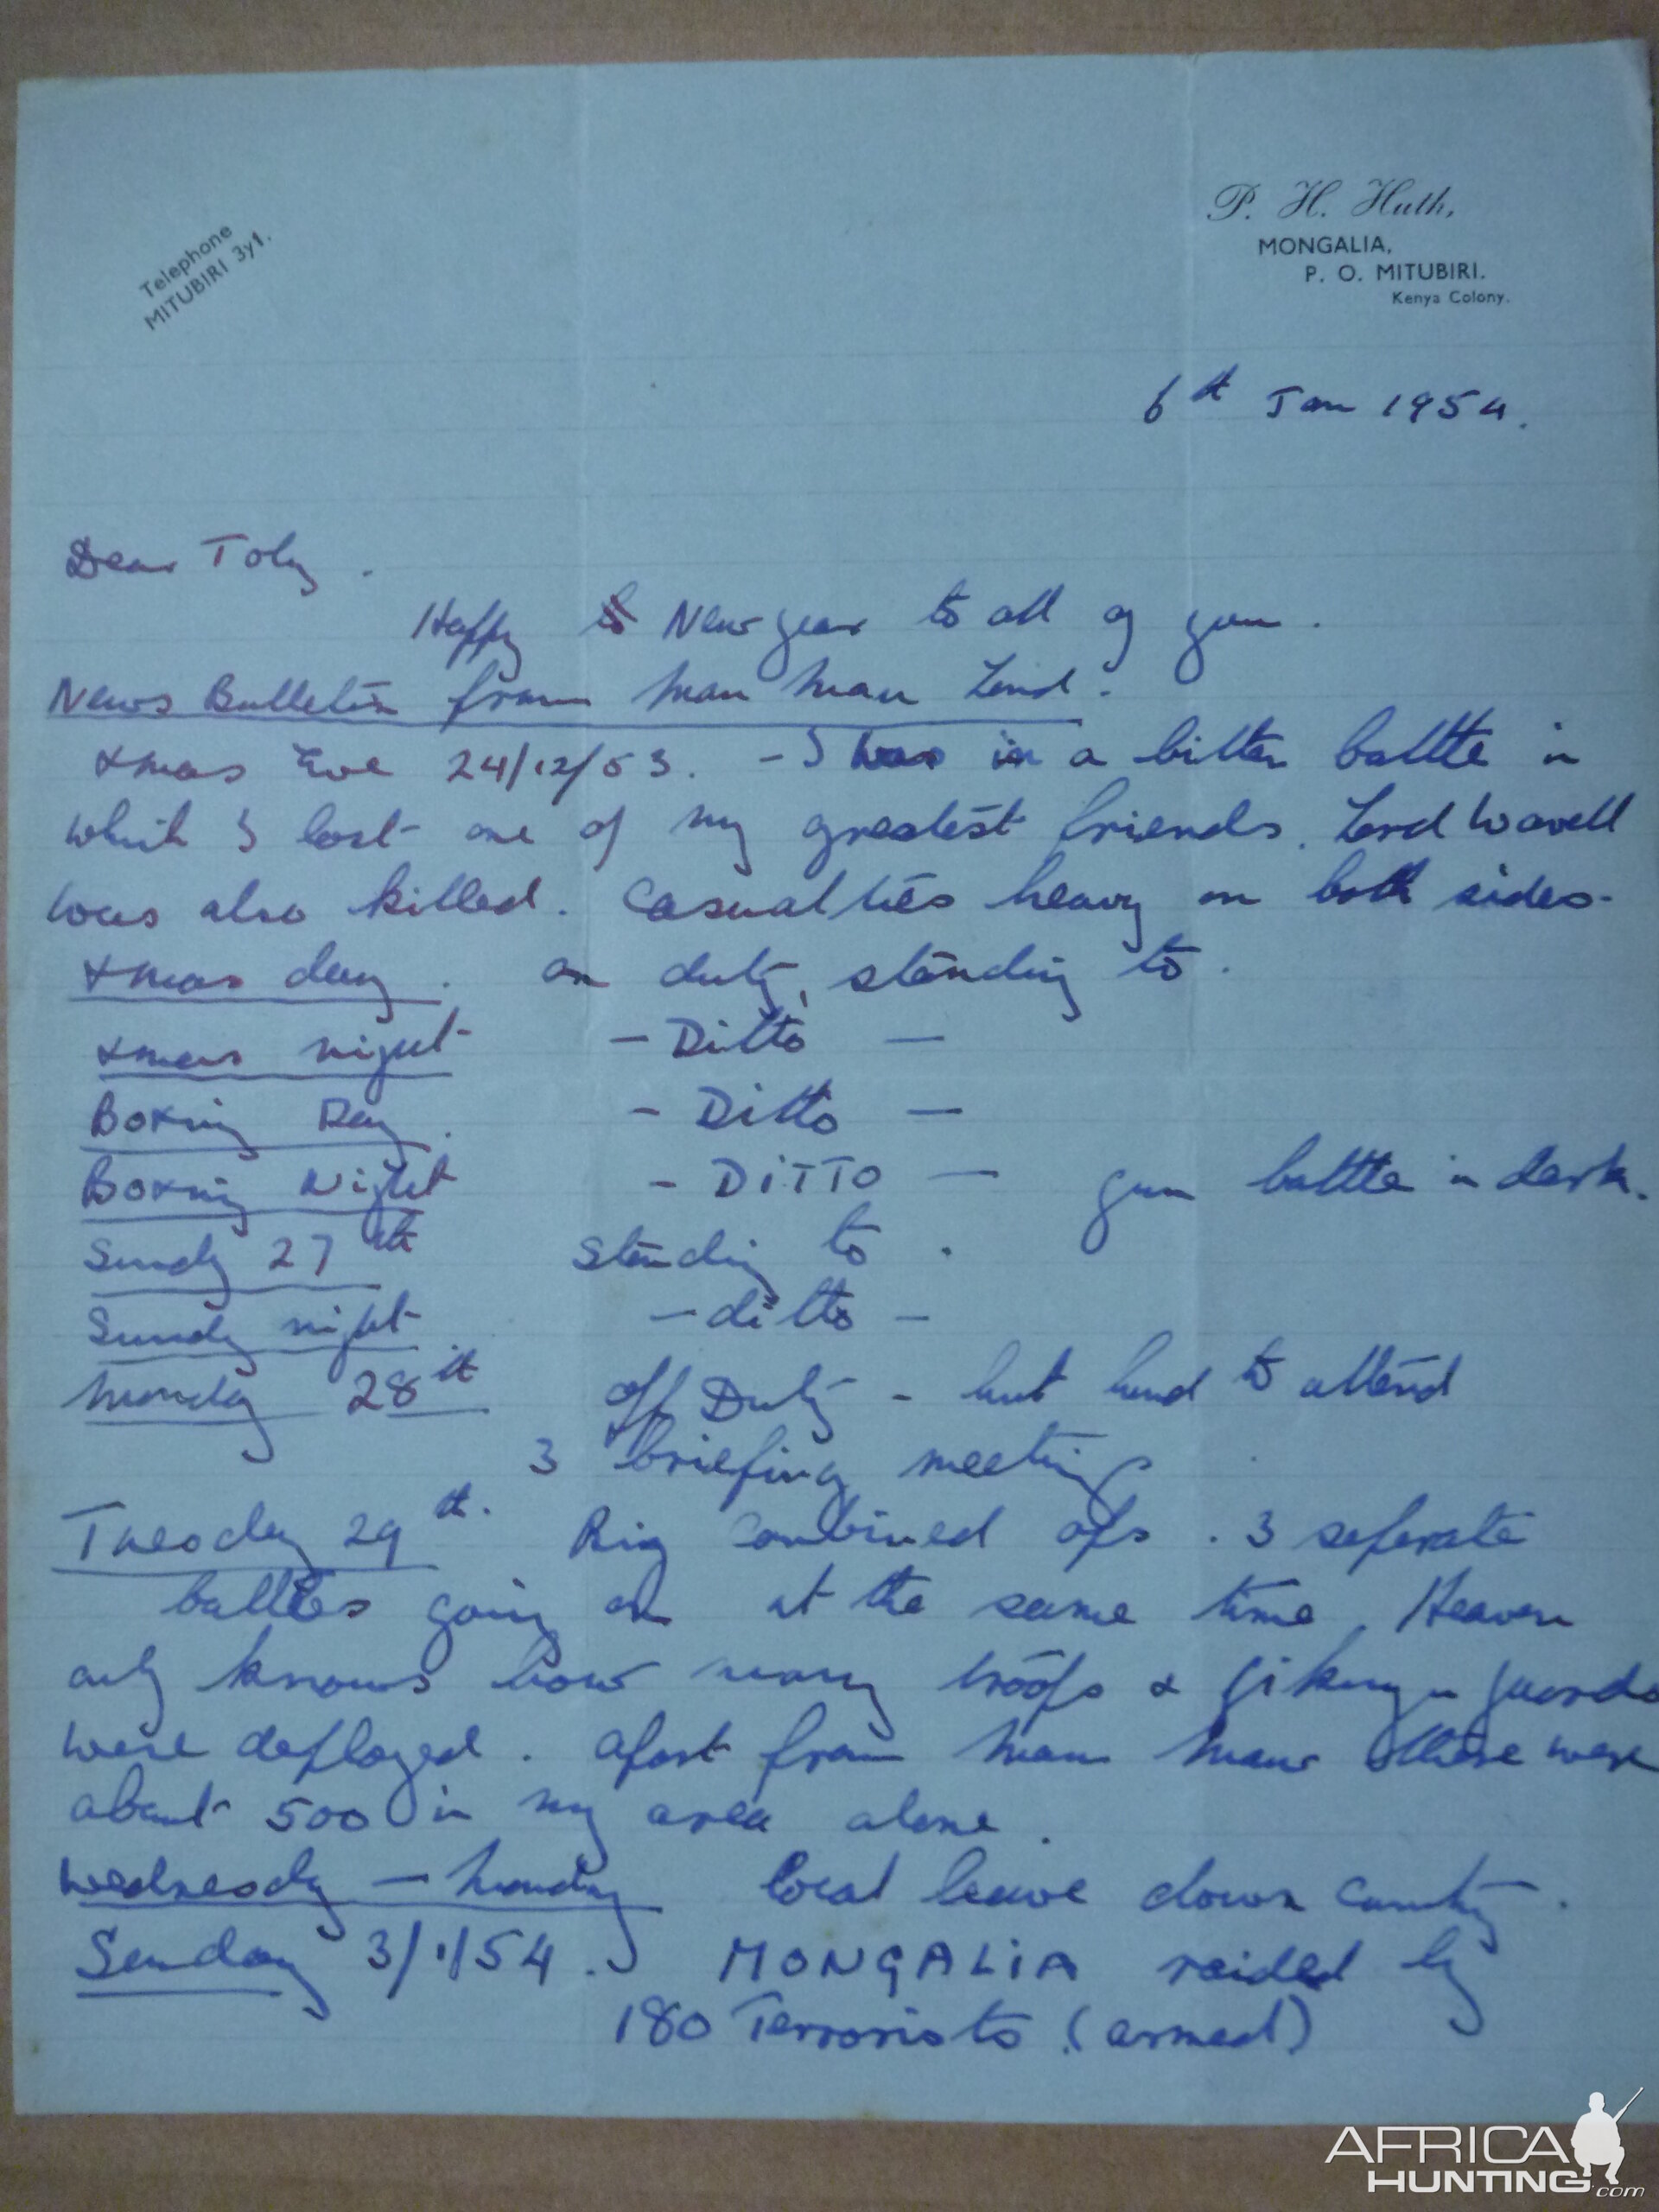 Telephone
MITUBIRI 3y1.
P. H. Huth,
MONGALIA,
P. O. MITUBIRI.
Kenya Colony.
6th Jan 1954.
Dear Toby.
Happy New year to all of you.
News Bulletin from Mau Mau Land.
Xmas Eve 24/12/53. - I was in a bitter battle in
which I lost one of my greatest friends. Lord Wavell
was also killed. Casualties heavy on both sides.
Xmas day. on duty, standing to.
Xmas night - Ditto -
Boxing Day. - Ditto -
Boxing Night - DITTO - gun battle in dark.
Sunday 27th Standing to.
Sunday night - ditto -
Monday 28th Off Duty - but had to attend
3 briefing meetings
Tuesday 29th. Big combined ops. 3 seperate
battles going on at the same time. Heaven
only knows how many troops & Gikuyu guards
were deployed. apart from Mau Mau there were
about 500 in my area alone.
Wednesday - Monday local leave down country.
Sunday 3/1/54. MONGALIA raided by
180 Terrorists (armed)
AFRICA
HUNTING.com